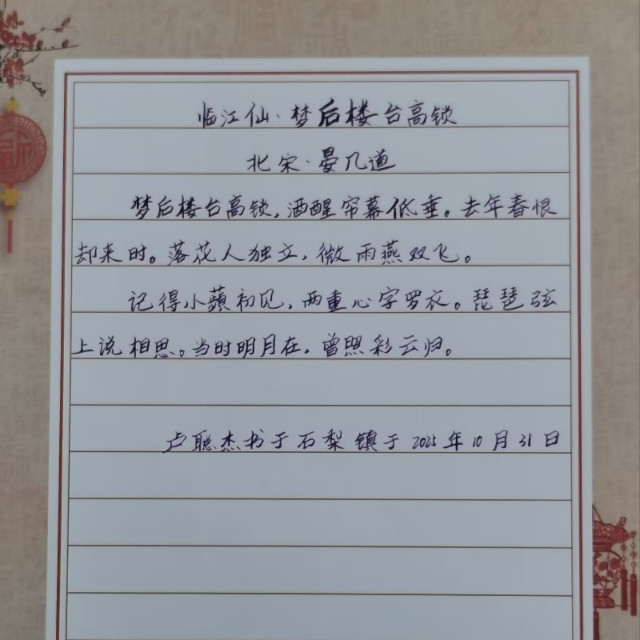 临江仙·梦后楼台高锁
北宋·晏几道
梦后楼台高锁,酒醒帘幕低垂。去年春恨
却来时。落花人独立,微雨燕双飞。
记得小蘋初见,两重心字罗衣。琵琶弦
上说相思。当时明月在,曾照彩云归。
卢聪杰书于石梨镇于2025年10月31日